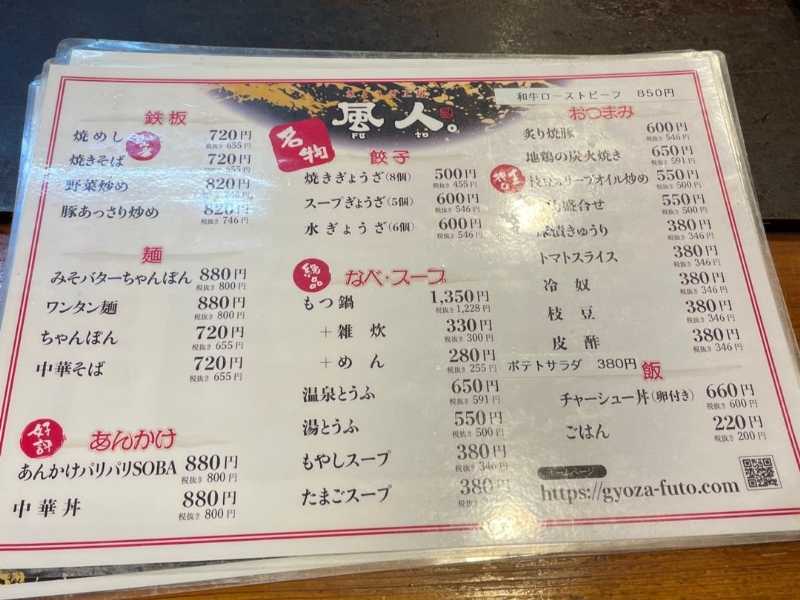 鉄板
焼めし 720円
税抜き 655円
焼きそば 720円
野菜炒め 820円
豚あっさり炒め 820円
税抜き 746円
麺
みそバターちゃんぽん 880円
税抜き 800円
ワンタン麺 880円
税抜き 800円
ちゃんぽん 720円
税抜き 655円
中華そば 720円
税抜き 655円
好評
あんかけ
あんかけパリパリSOBA 880円
税抜き 800円
中華丼 880円
税抜き 800円
風人。
FU TO
名物
餃子
焼きぎょうざ(8個) 500円
税抜き 455円
スープぎょうざ(5個) 600円
税抜き 546円
水ぎょうざ(6個) 600円
税抜き 546円
なべ・スープ
もつ鍋 1,350円
税抜き 1,228円
+雑炊 330円
税抜き 300円
+めん 280円
税抜き 255円
温泉とうふ 650円
税抜き 591円
湯とうふ 550円
税抜き 500円
もやしスープ 380円
税抜き 346円
たまごスープ 380円
和牛ローストビーフ 850円
おつまみ
炙り焼豚 600円
税抜き 546円
地鶏の炭火焼き 650円
税抜き 591円
枝豆オリーブオイル炒め 550円
税抜き 500円
盛合せ 550円
税抜き 500円
きゅうり 380円
税抜き 346円
トマトスライス 380円
税抜き 346円
冷奴 380円
税抜き 346円
枝豆 380円
税抜き 346円
皮酢 380円
税抜き 346円
ポテトサラダ 380円
飯
チャーシュー丼(卵付き) 660円
税抜き 600円
ごはん 220円
税抜き 200円
ホームページ
https://gyoza-futo.com